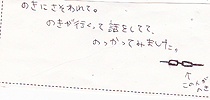 のきにさそわれて。
のきが行くって話をしてて、
のっかってみました。
↑
このんが